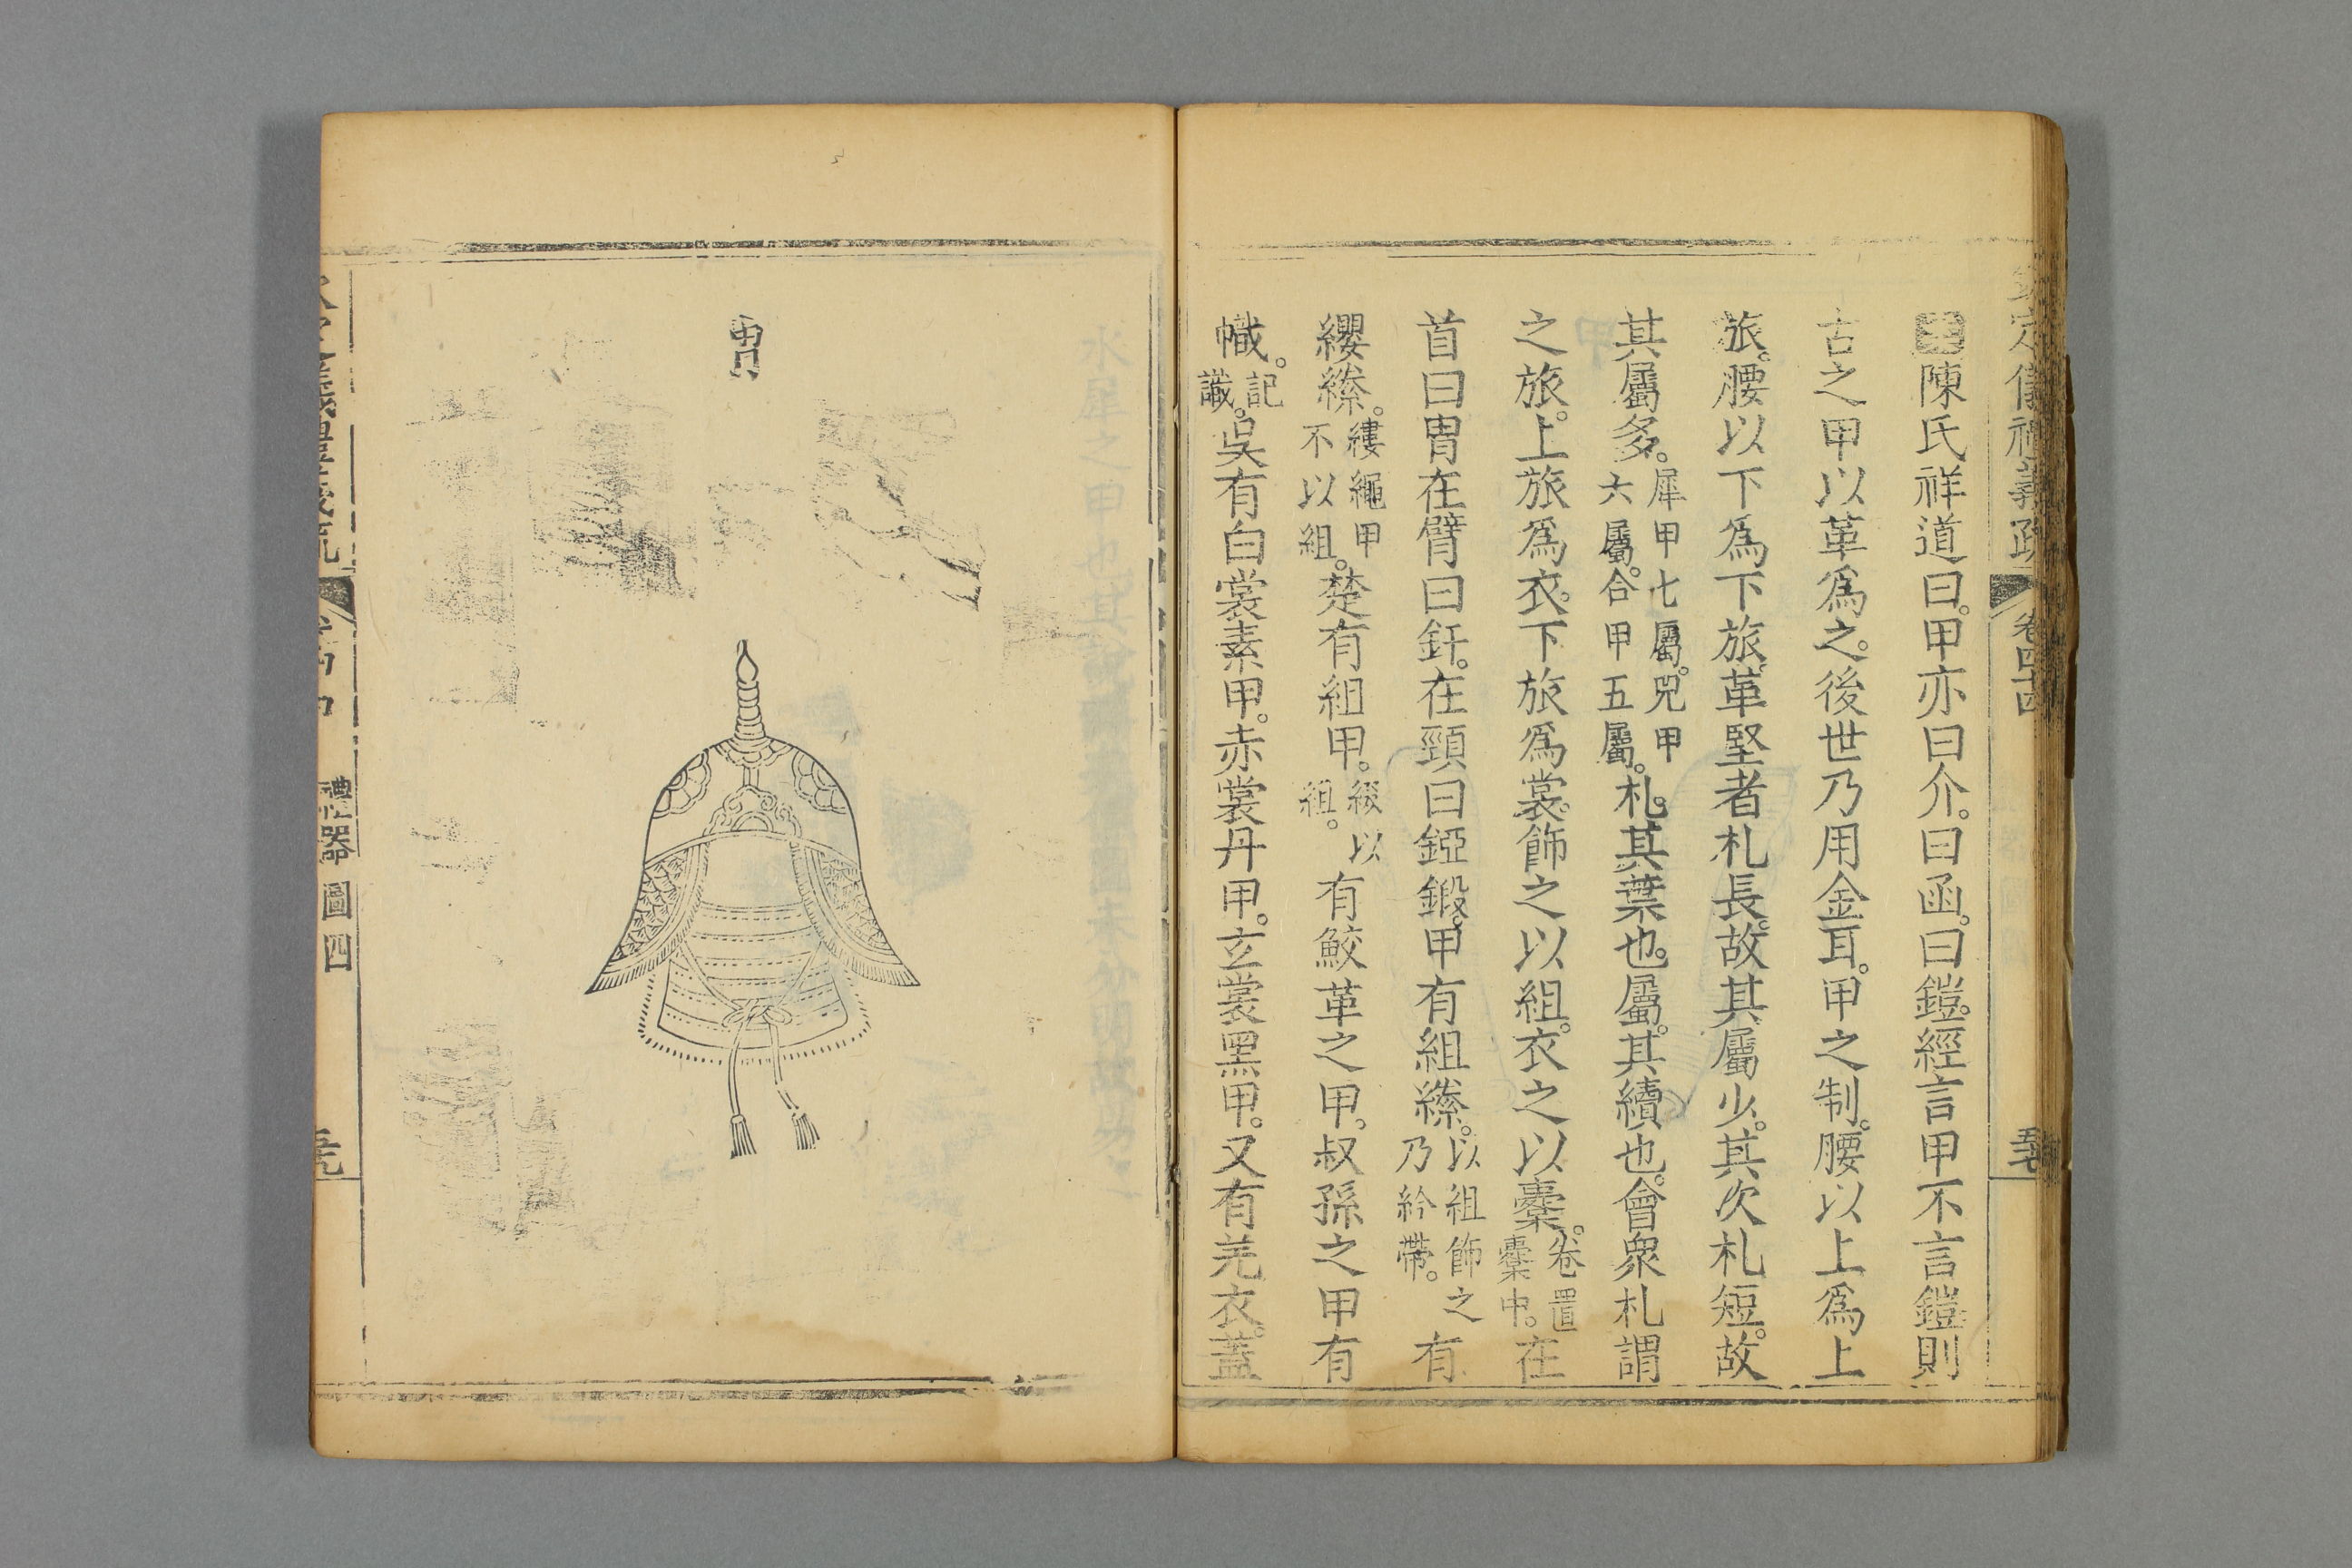 定儀禮義疏 卷四十四
陳氏祥道曰。甲亦曰介。曰函。曰鎧。經言甲不言鎧則
古之甲以革爲之。後世乃用金耳。甲之制。腰以上爲上
旅。腰以下爲下旅。革堅者札長。故其屬少。其次札短。故
其屬多。犀甲七屬。兕甲六屬。合甲五屬。札。其葉也。屬。其續也。會衆札謂
之旅。上旅爲衣。下旅爲裳。飾之以組。衣之以櫜。卷置櫜中。在
首曰冑在臂曰釬。在頸曰錏鍜。甲有組縧。以組飾之乃紟帶。有
纓縧。縷繩甲不以組。楚有組甲。綴以組。有鮫革之甲。叔孫之甲有
幟。記識。吳有白裳素甲。赤裳丹甲。玄裳黑甲。又有羌衣。蓋
冑
禮器圖四